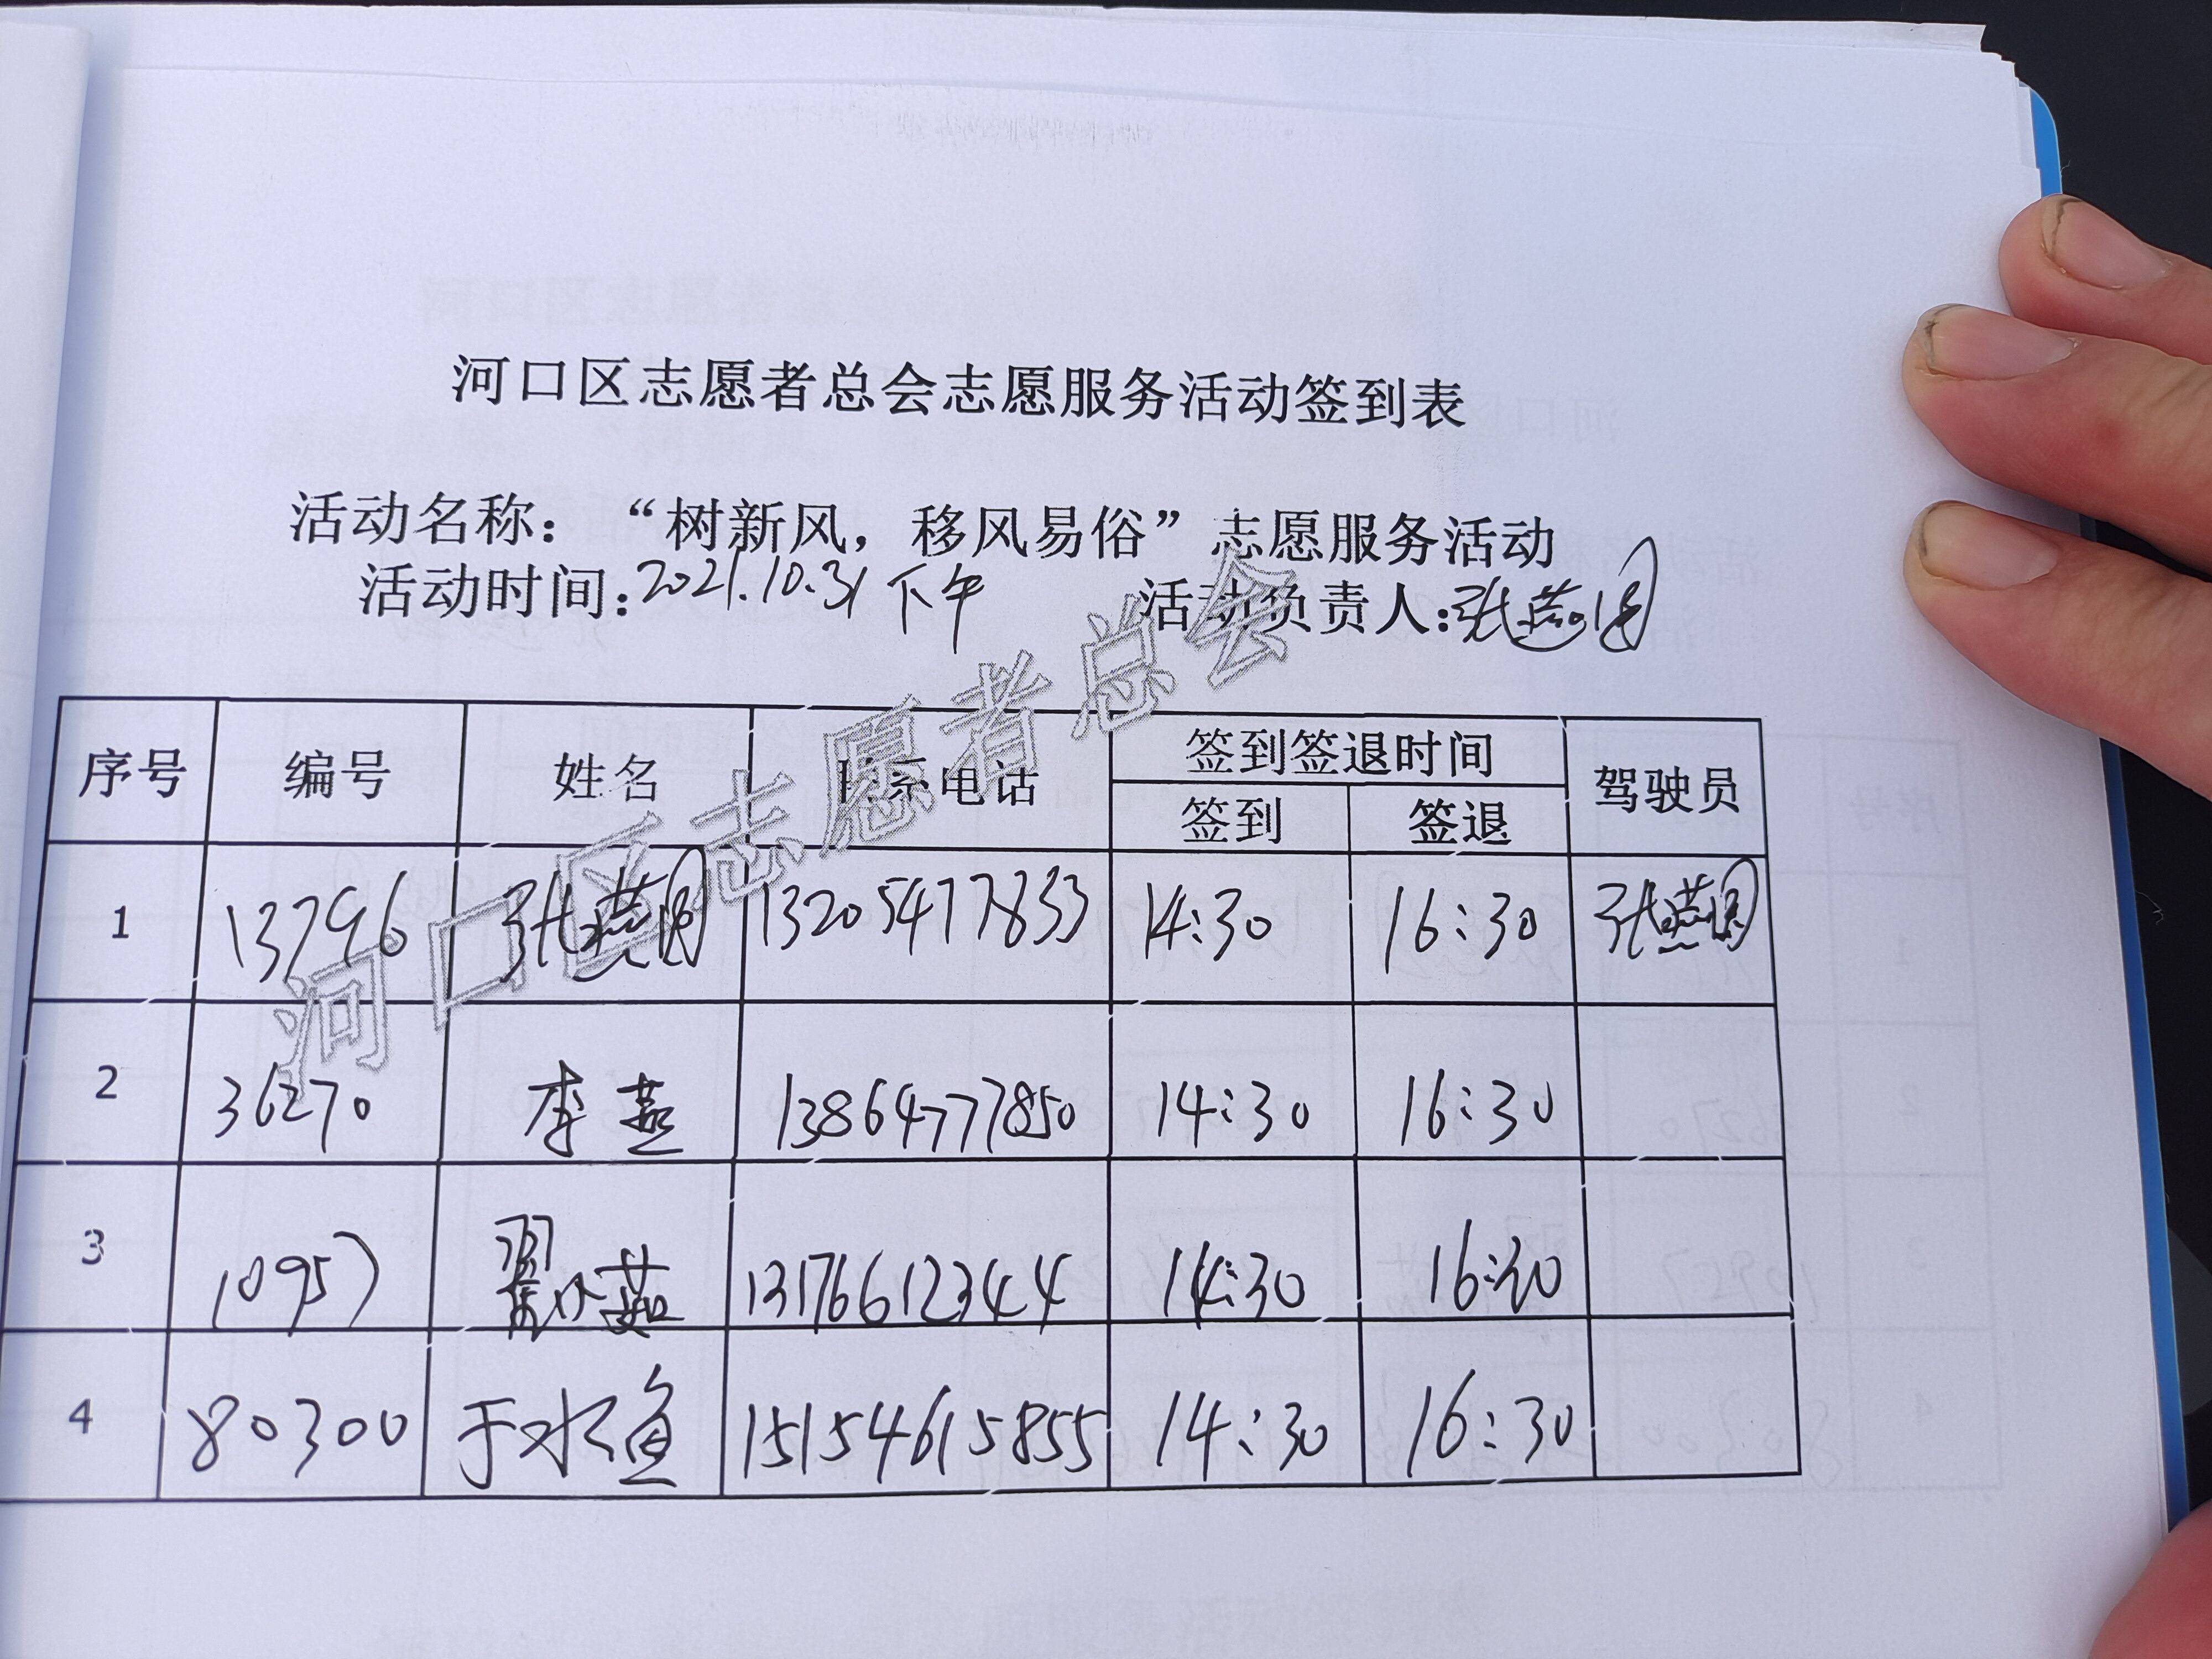 河口区志愿者总会志愿服务活动签到表
活动名称：“树新风，移风易俗”志愿服务活动
活动时间：2021.10.31下午 活动负责人：张燕
河口区志愿者总会
序号 编号 姓名 联系电话 签到签退时间 驾驶员
签到 签退
1 13796 张燕 13205477833 14:30 16:30 张燕
2 36270 李燕 13864777850 14:30 16:30
3 10957 翟小茹 13176612344 14:30 16:30
4 80300 于水鱼 15154615855 14:30 16:30